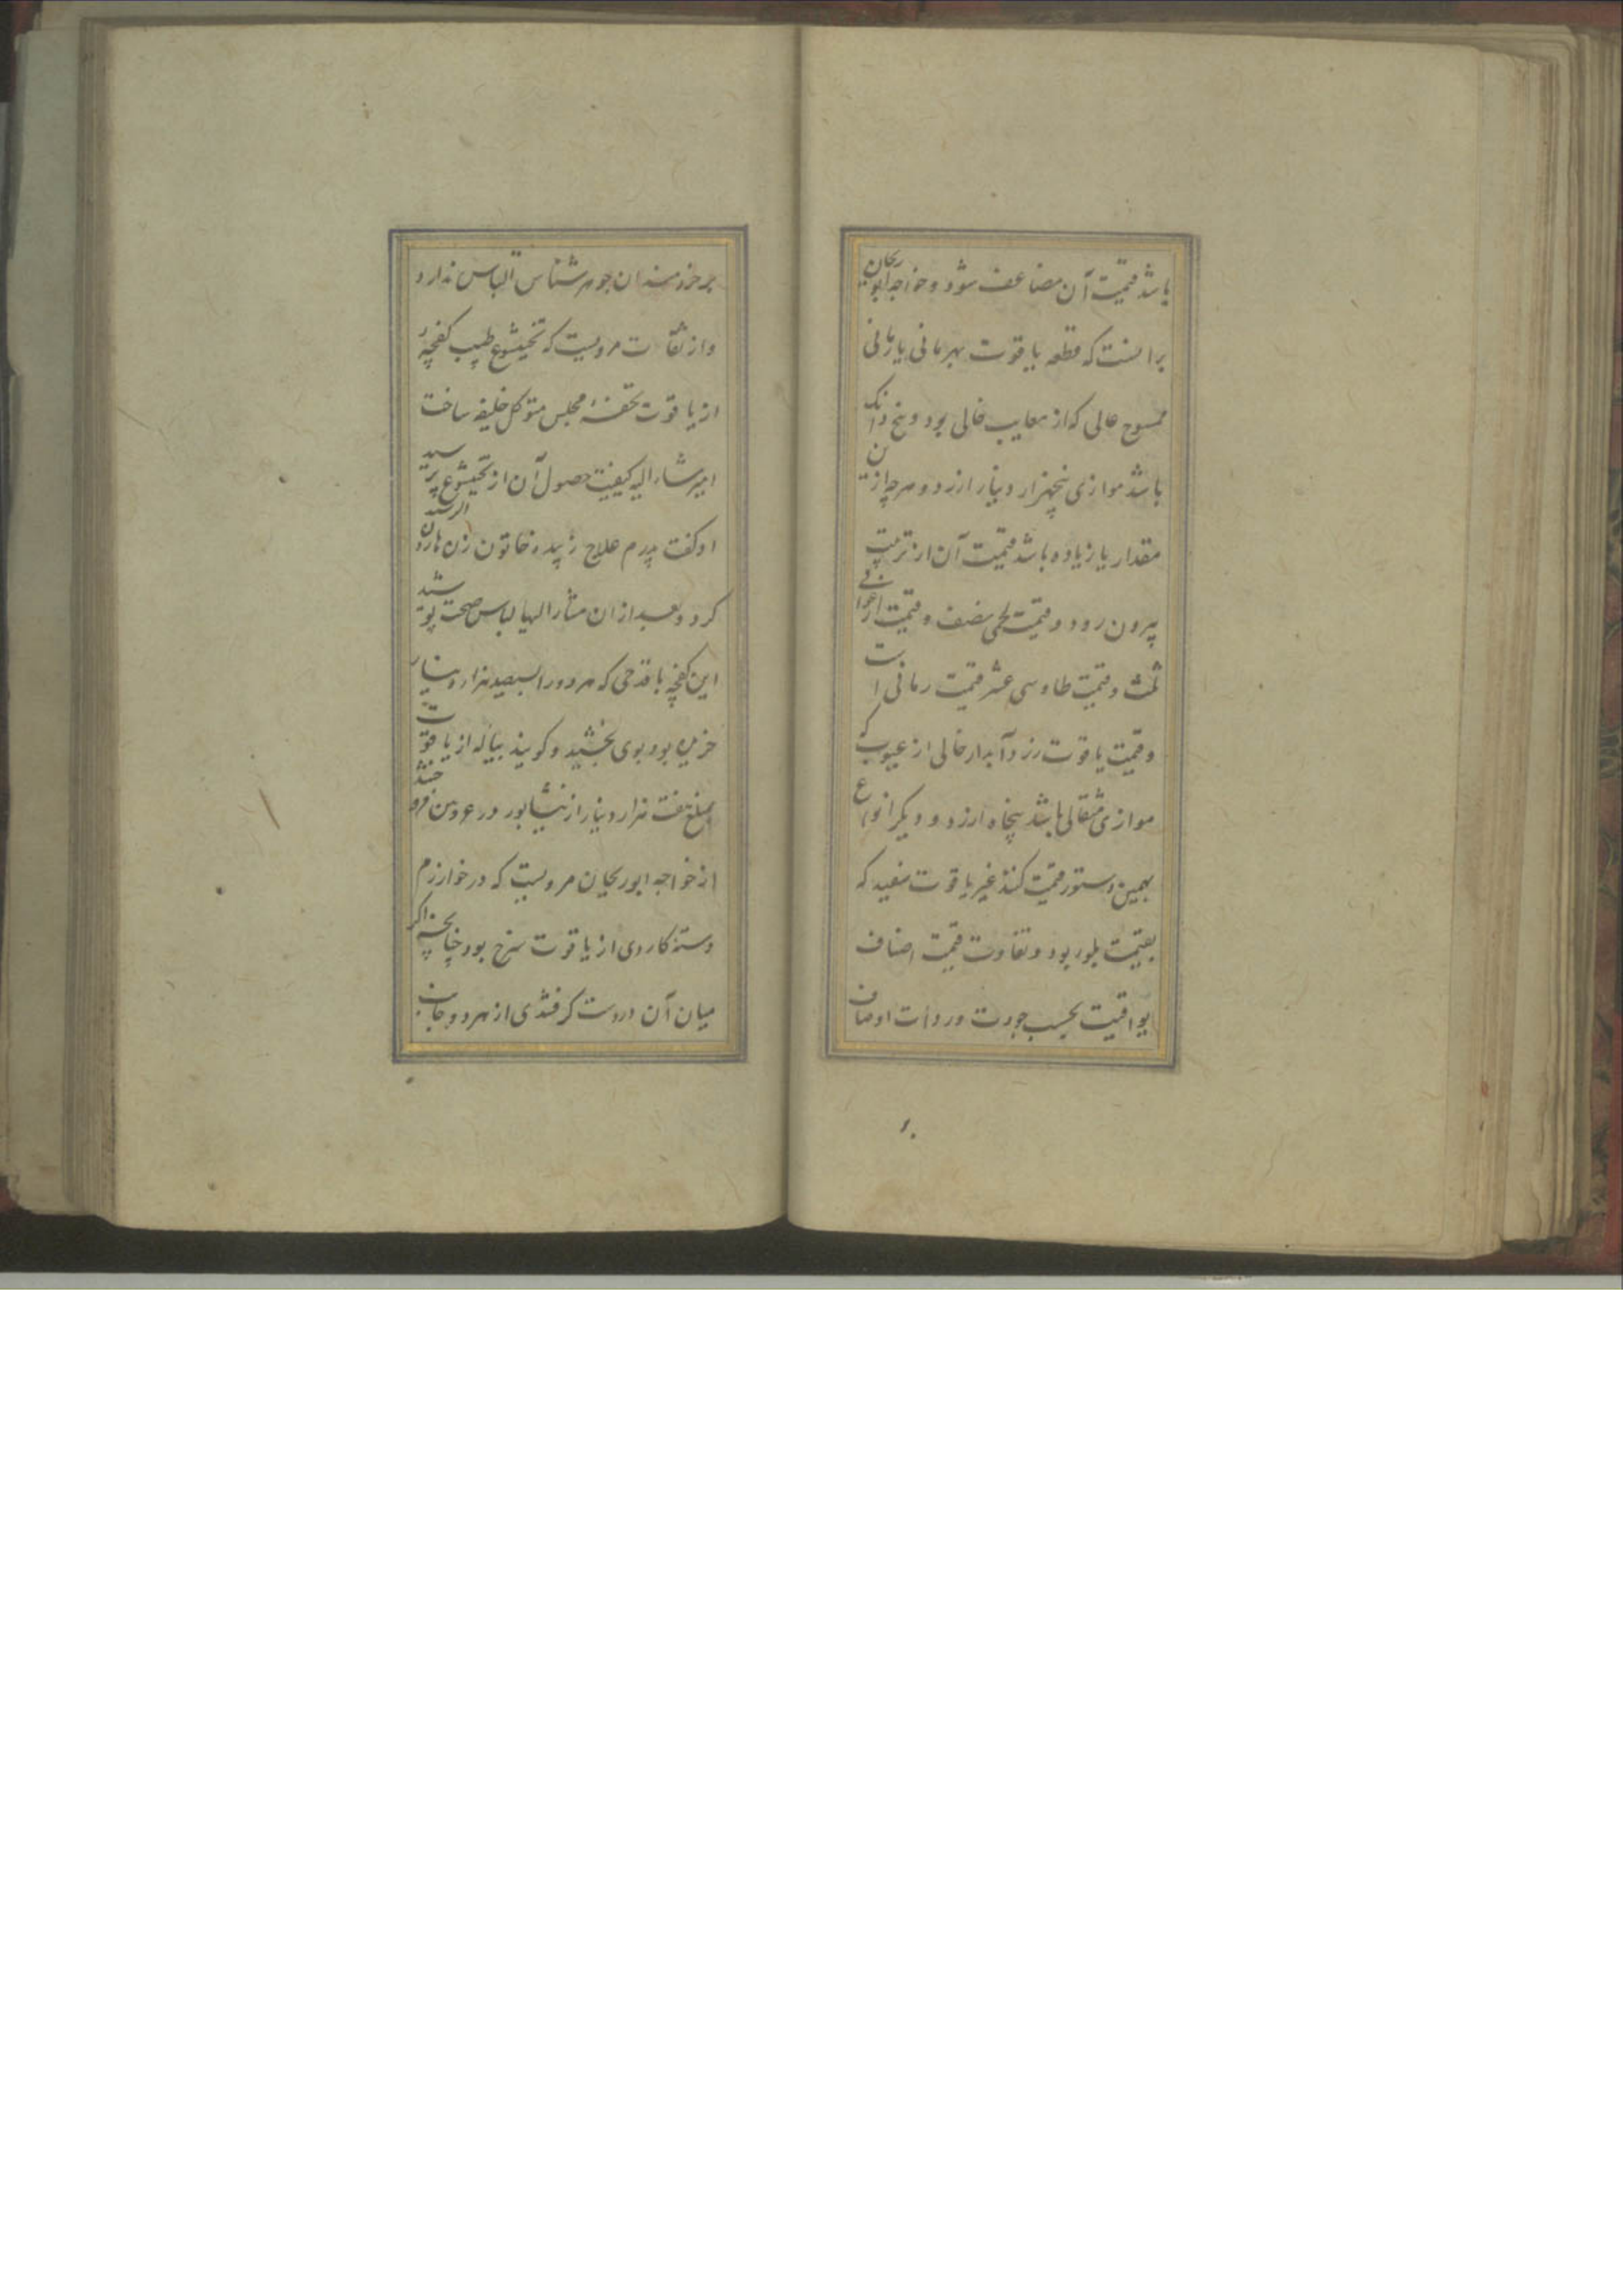 باشد قیمت آن مضاعف شود و خواجه ابوریحان
برانست که قطعه یاقوت بهرمانی یا رمانی
ممسوح عالی که از معایب خالی بود و پنج دانک
باشد موازی پنجهزار دینار ارزد و هرچه ازین
مقدار یا زیاده باشد قیمت آن از ترتیب
بیرون رود و قیمت لحمی نصف و قیمت ارغوانی
ثلث و قیمت طاوسی عشر قیمت رمانی است
و قیمت یاقوت زرد آبدار خالی از عیوب که
موازی مثقالی باشد پنجاه ارزد و دیگر انواع
بهمین دستور قیمت کنند غیر یاقوت سفید که
بقیمت بلور بود و تفاوت قیمت اصناف
یواقیت بحسب جودت و ردأت اوصاف
بر خردمندان جوهر شناس التباس ندارد
و از ثقات مرویست که بختیشوع طبیب کفچهٔ
از یاقوت تحفهٔ مجلس متوکل خلیفه ساخت
امیر مشار الیه کیفیت حصول آن از بختیشوع پرسید
او کفت پدرم علاج زبیده خاتون زن هارون الرشید
کرد و بعد از ان مشار الیها لباس صحت پوشید
این کفچه با قدحی که هر دو را بسیصد هزار دینار
خریده بود بوی بخشید و کویند پیاله از یاقوت
بمبلغ هفت هزار دینار از نیشابور در عروض فروختند
از خواجه ابوریحان مرویست که در خوارزم
دسته کاردی از یاقوت سرخ بود چنانچه اکر
میان آن در دست کرفتندی از هر دو جانب